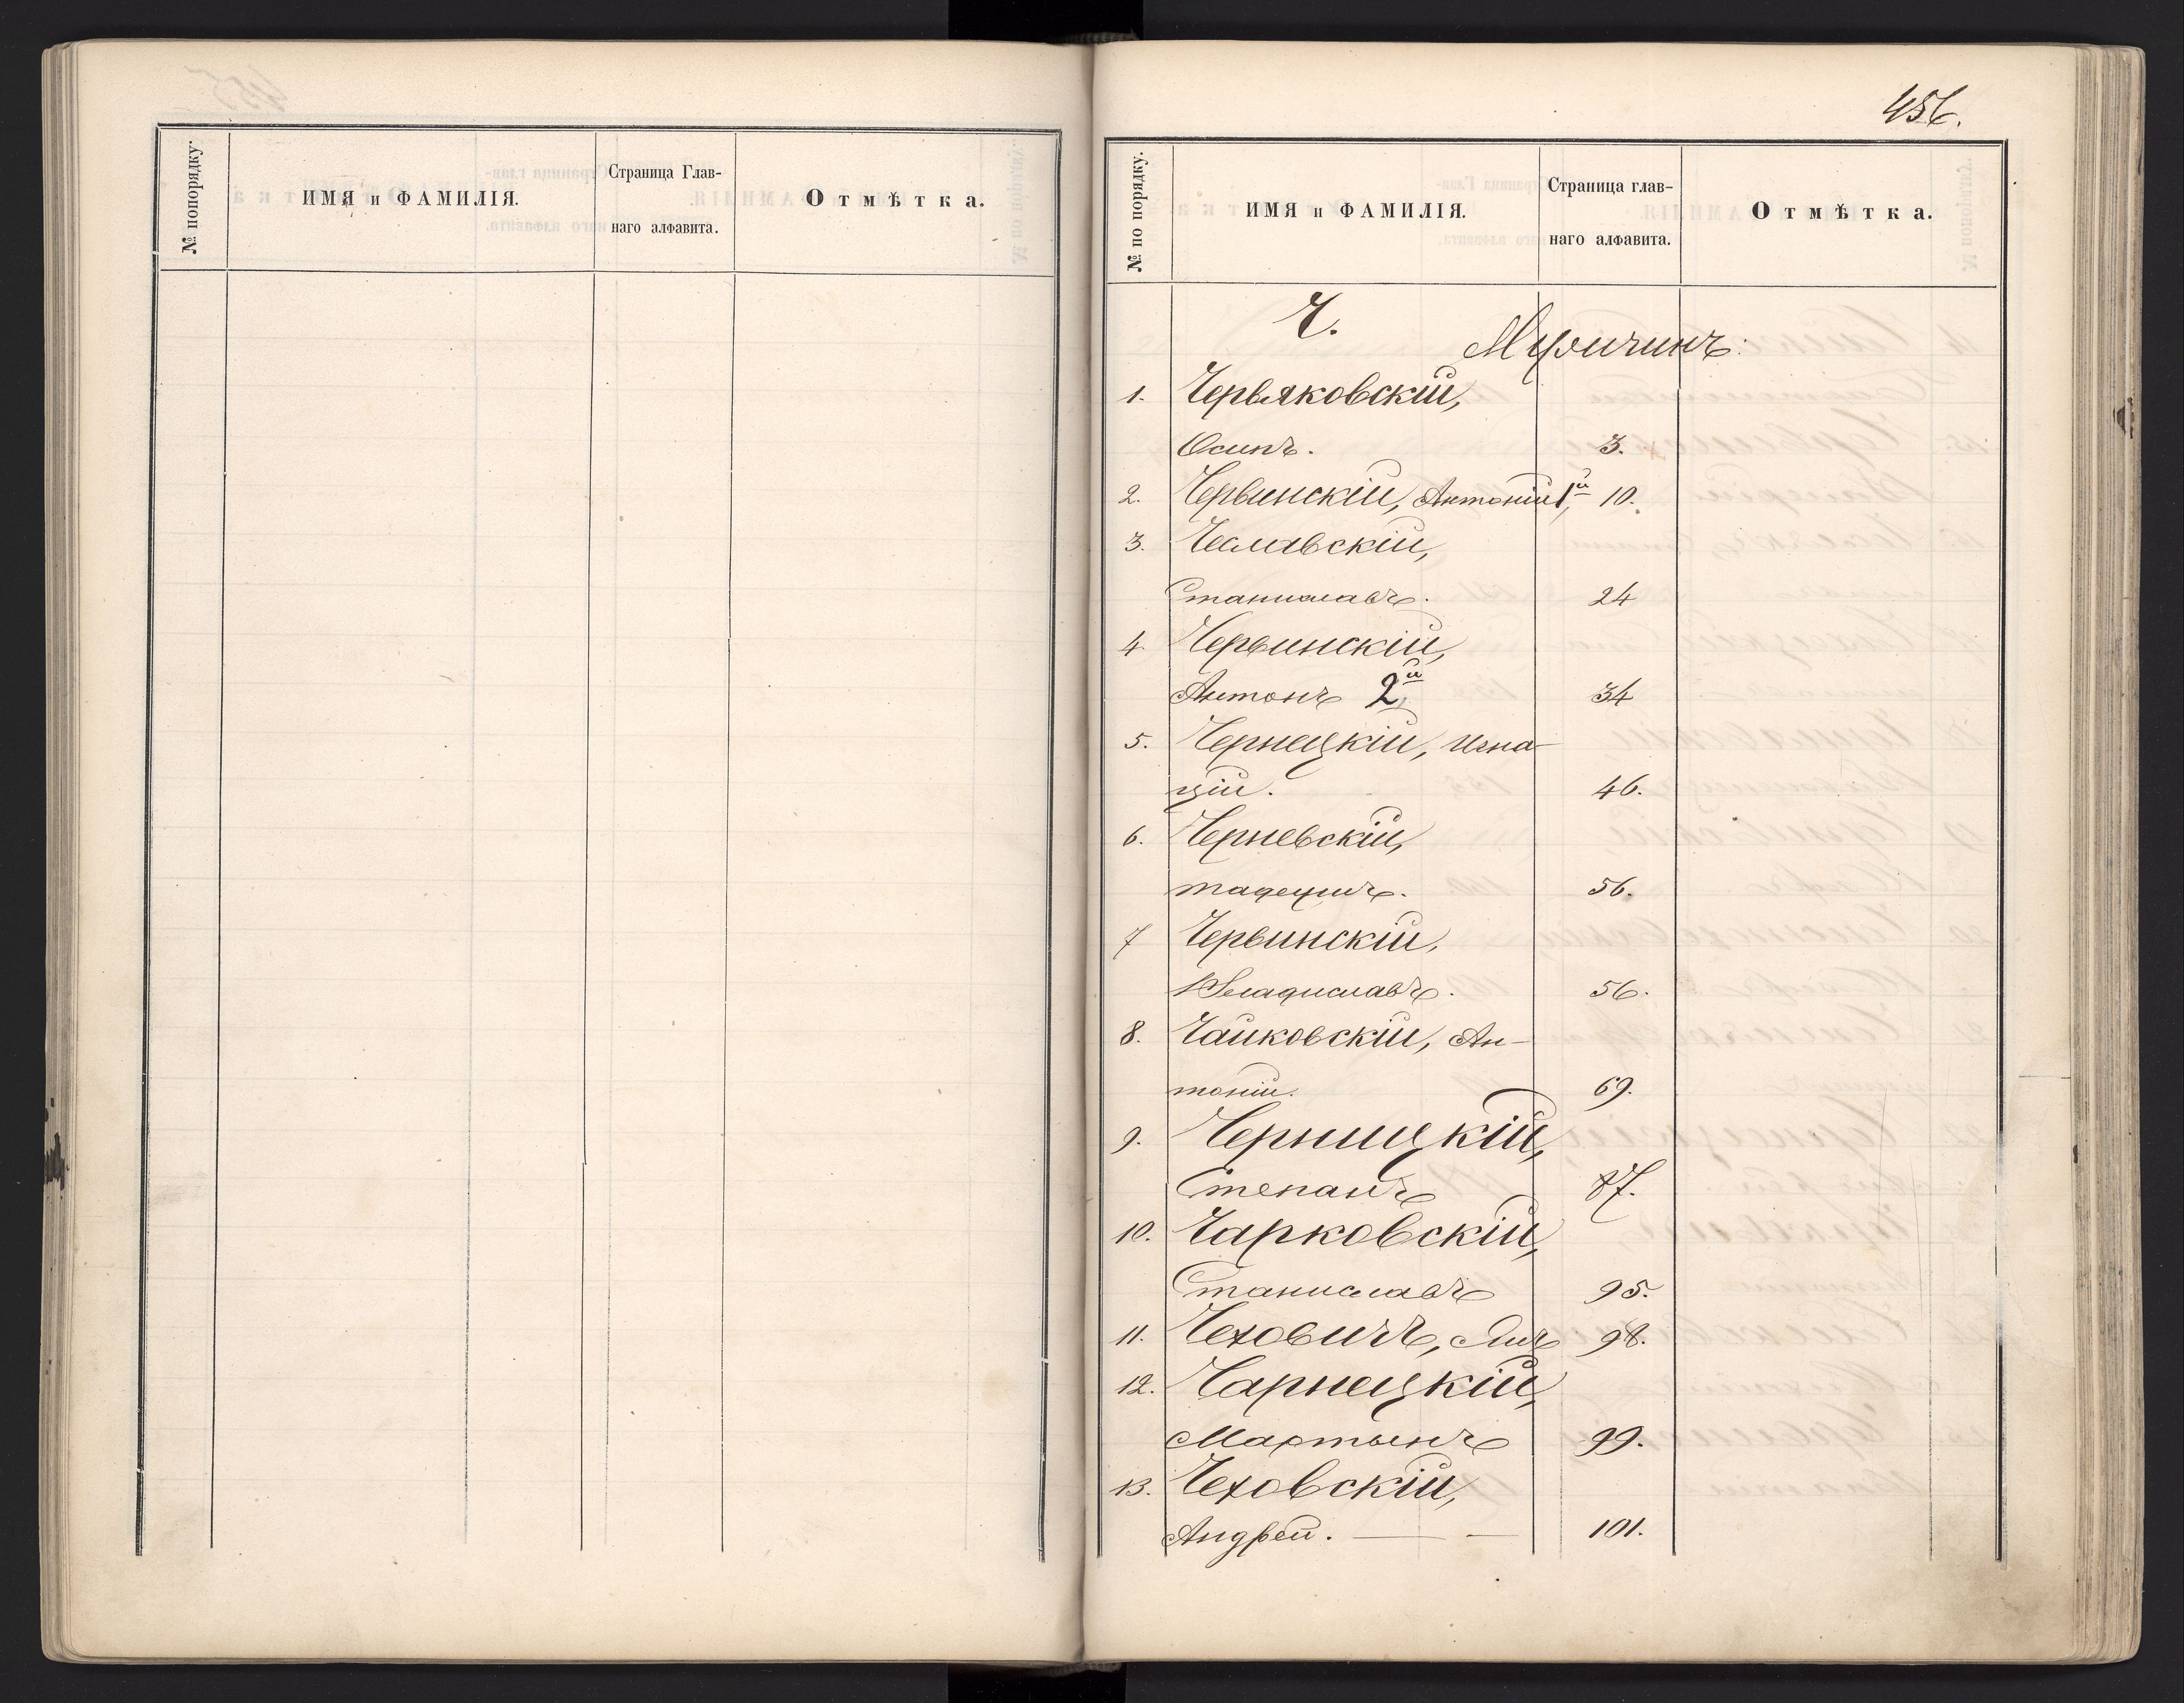 № попорядку.
ИМЯ и ФАМИЛІЯ.
Страница Глав-
наго алфавита.
Отмѣтка.
456.
№ по порядку.
ИМЯ и ФАМИЛІЯ.
Страница глав-
наго алфавита.
Отмѣтка.
Ч.
Мужчинъ:
1. Червяковскій,
Осипъ. 3.
2. Червинскій, Антоній 1й, 10.
3. Чеславскій,
Станиславъ. 24
4. Червинскій,
Антонъ 2й, 34
5. Чернецкій, Игна-
цій. 46.
6. Черневскій,
Тадеушъ. 56.
7 Червинскій,
Владиславъ. 56.
8. Чайковскій, Ан-
тоній. 69.
9. Черницкій,
Степанъ 87.
10. Чарковскій,
Станиславъ 95.
11. Чеховичъ, Янъ 98.
12. Чарнецкій,
Мартынъ 99.
13. Чеховскій,
Андрей. — — 101.